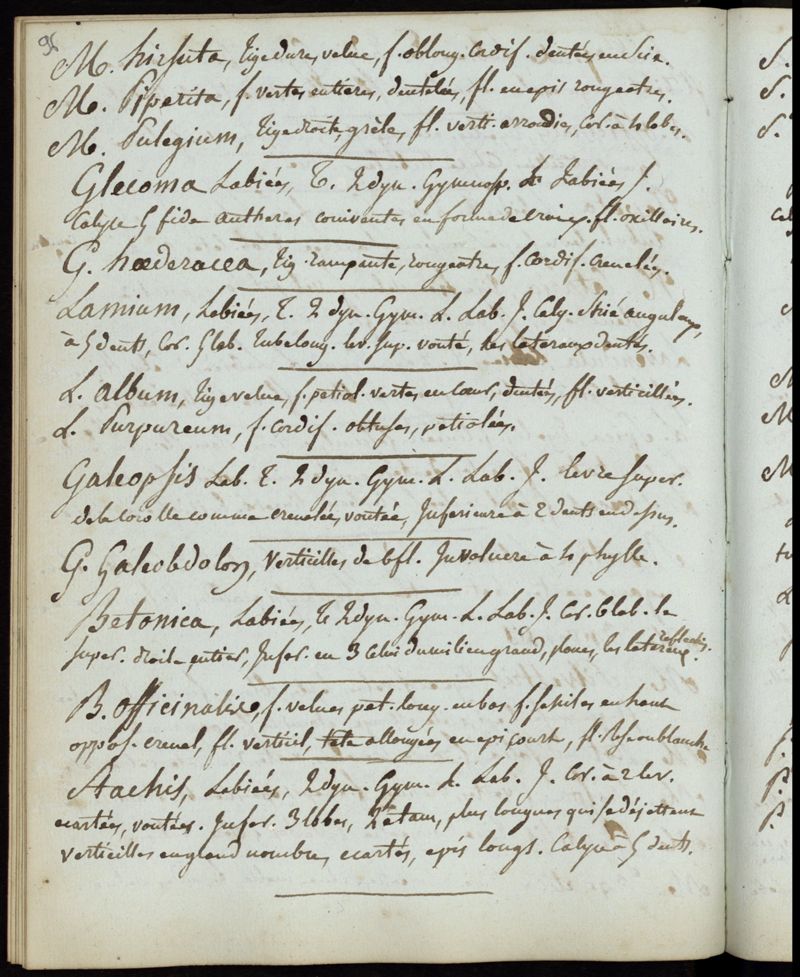 96
M. hirsuta, tige dure, velue, f. oblong. Cordif. dentées en scie.
M. Piperita, f. vertes entieres, dentelées, fl. en epis rougeatres.
M. Pulegium, tige droite, grèle, fl. vertic. arrondies, Cor. à 4 lobes.
Glecoma Labiées, T. 2 dyn. Gymnosp. L. Labiées J.
Calyce 5 fide antheres conniventes en forme de croix, fl. axillaires.
G. hœderacea, tig. rampante, rougeatres, f. Cordif. Crenelées.
Lamium, Labiées, T. 2 dyn. Gym. L. Lab. J. Caly. Strié anguleux,
à 5 dents, Cor. 5 lob. tube long. lev. sup. vouté, les lateraux dentés.
L. album, tige velue, f. petiol. vertes en cœur, dentés, fl. verticillées.
L. Purpureum, f. cordif. obtuses, petiolées.
Galeopsis Lab. T. 2 dyn. Gym. L. Lab. J. levre super.
de la corolle comme crenelée, voutée, Inferieure à 2 dents en dessus.
G. Galeobdolon, Verticilles de 6 fl. Involucre à 4 phylle.
Betonica, Labiées, T. 2 dyn. Gym. L. Lab. J. Cor. 6 lob. le
super. droit, entier, Infer. en 3 Celui du milieu grand, les lateraux reflechis.
B. officinalis, f. velues pet. long. en bas f. sessiles en haut
oppos. crenel, fl. verticil, allongées en epi court, fl. Rose ou blanche
Stachis, Labiées, 2 dyn. Gym. L. Lab. J. Cor. à 2 lev.
ecartées, voutées. Infer. 3 lobes, 2 etam, plus longues qui se déjettent
verticilles en grand nombre, ecartés, epis longs. Calyce à 5 dents.